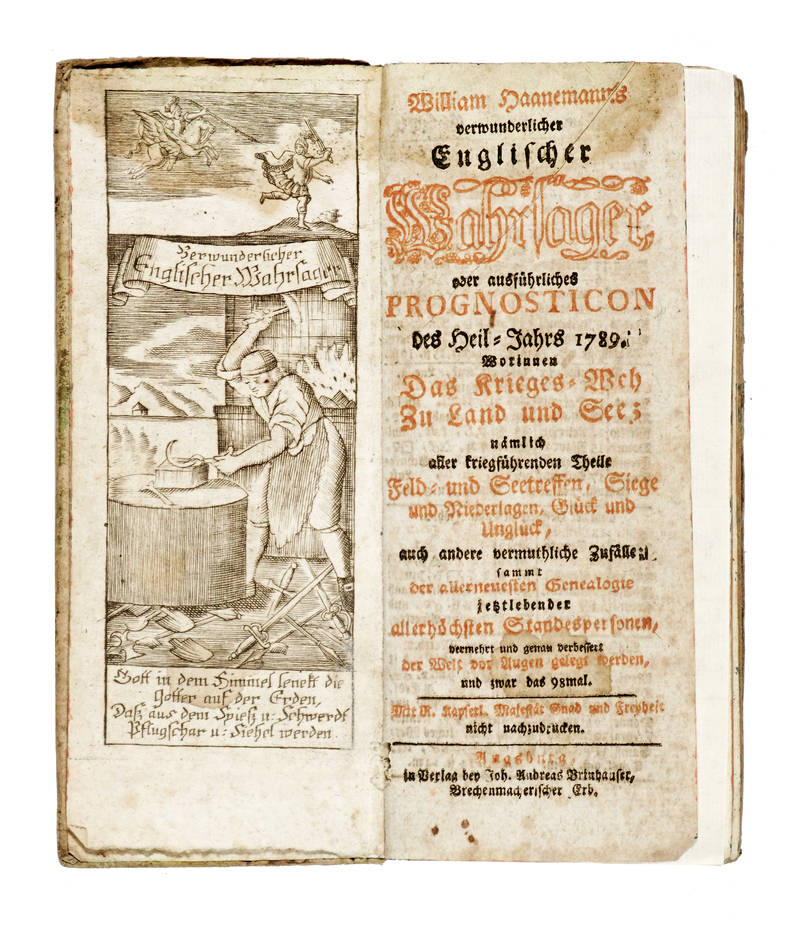 Verwunderlicher
Englischer Wahrsager
Gott in dem Himmel lenckt die
Götter auf der Erden,
Daß aus dem Spieß u: Schwerdt
Pflugschar u: Siehel werden.
William Haanemanns
verwunderlicher
Englischer
Wahrsager,
oder ausführliches
PROGNOSTICON
des Heil-Jahrs 1789.
Worinnen
Das Krieges-Weh
Zu Land und See;
nämlich
aller kriegführenden Theile
Feld- und Seetreffen, Siege
und Niederlagen, Glück und
Unglück,
auch andere vermuthliche Zufälle,
sammt
der allerneuesten Genealogie
jetztlebender
allerhöchsten Standespersonen,
vermehrt und genau verbessert
der Welt vor Augen gelegt werden,
und zwar das 93mal.
Mit R. Kayserl. Majestät Gnad und Freyheit
nicht nachzudrucken.
Augsburg,
in Verlag bey Joh. Andreas Brinhauser,
Brechenmacherischer Erb.